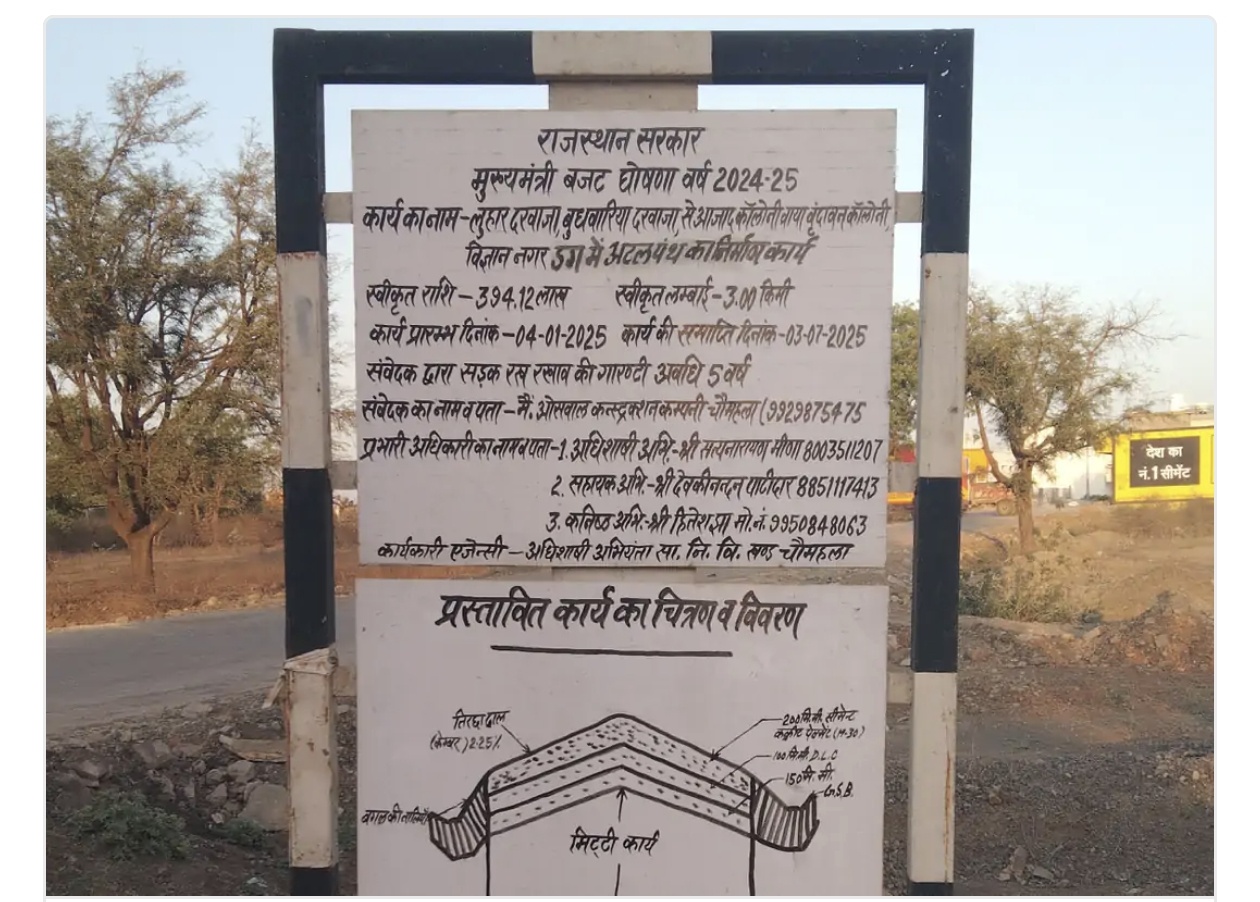 राजस्थान सरकार
मुख्यमंत्री बजट घोषणा वर्ष 2024-25
कार्य का नाम - लुहार दरवाजा, बुधवारिया दरवाजा, से आजाद कॉलोनी वाया वृंदावन कॉलोनी,
विज्ञान नगर डग में अटल पंथ का निर्माण कार्य
स्वीकृत राशि - 394.12 लाख स्वीकृत लम्बाई - 3.00 किमी
कार्य प्रारम्भ दिनांक - 04-01-2025 कार्य की समाप्ति दिनांक - 03-07-2025
संवेदक द्वारा सड़क रख रखाव की गारण्टी अवधि 5 वर्ष
संवेदक का नाम व पता - मै. ओसवाल कन्स्ट्रक्शन कम्पनी चौमहला (9929875475
प्रभारी अधिकारी का नाम व पता - 1. अधिशाषी अभि.- श्री सत्यनारायण मीणा 8003511207
2. सहायक अभि.- श्री देवकीनन्दन पाटीदार 8851117413
3. कनिष्ठ अभि.- श्री हितेश झा मो.नं. 9950848063
कार्यकारी एजेन्सी - अधिशाषी अभियंता सा. नि. वि. खण्ड चौमहला
प्रस्तावित कार्य का चित्रण व विवरण
तिरछा ढाल
(केम्बर) 2.25%
200 मि.मी. सीमेन्ट
कंक्रीट पेवमेंट (M-30)
100 मि.मी. D.L.C
150 मि. मी.
G.S.B.
बगल की नालियाँ
मिट्टी कार्य
देश का
नं. 1 सीमेंट